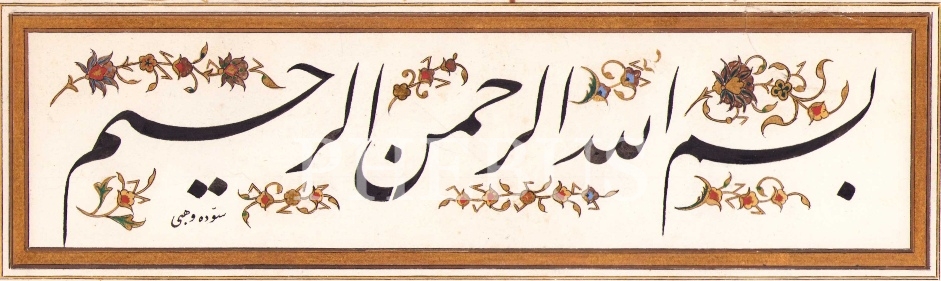 بسم الله الرحمن الرحیم
سوّده وهبی